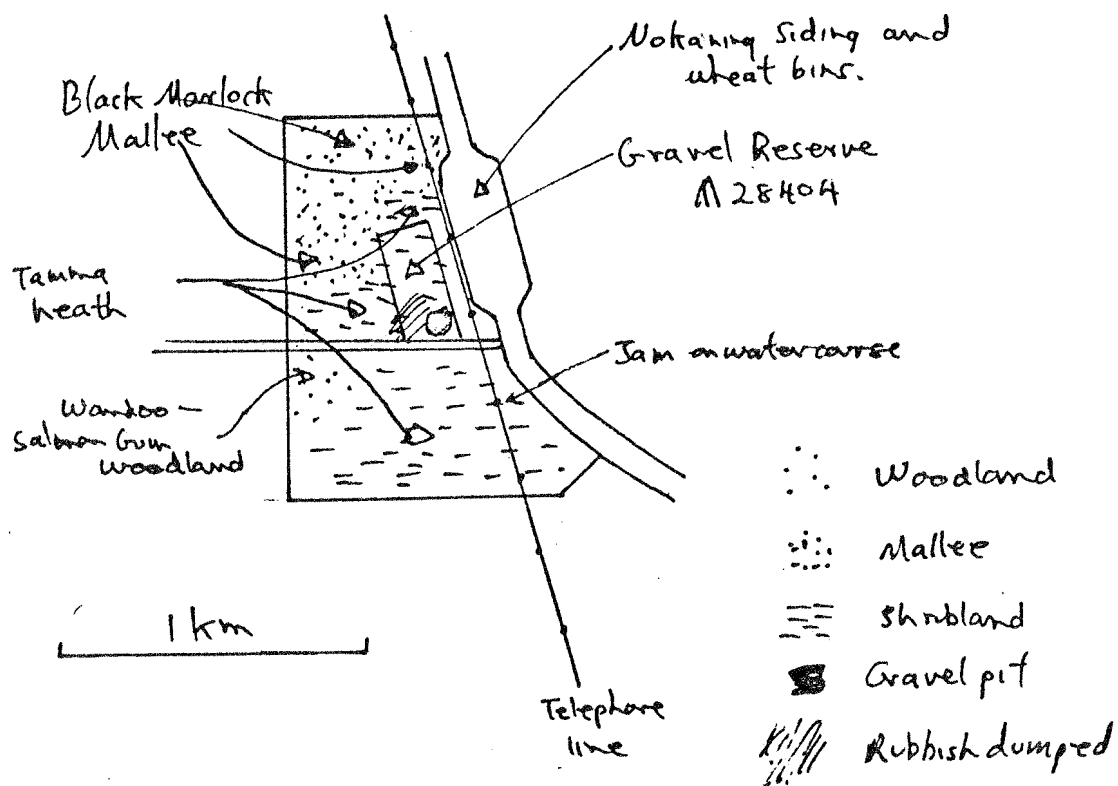 Nokaning Siding and
wheat bins.
Black Marlock
Mallee
Gravel Reserve
28404
Tamma
heath
Jam on watercourse
Wandoo –
Salmon Gum
woodland
Woodland
Mallee
Shrubland
Gravel pit
Rubbish dumped
1 km
Telephone
line